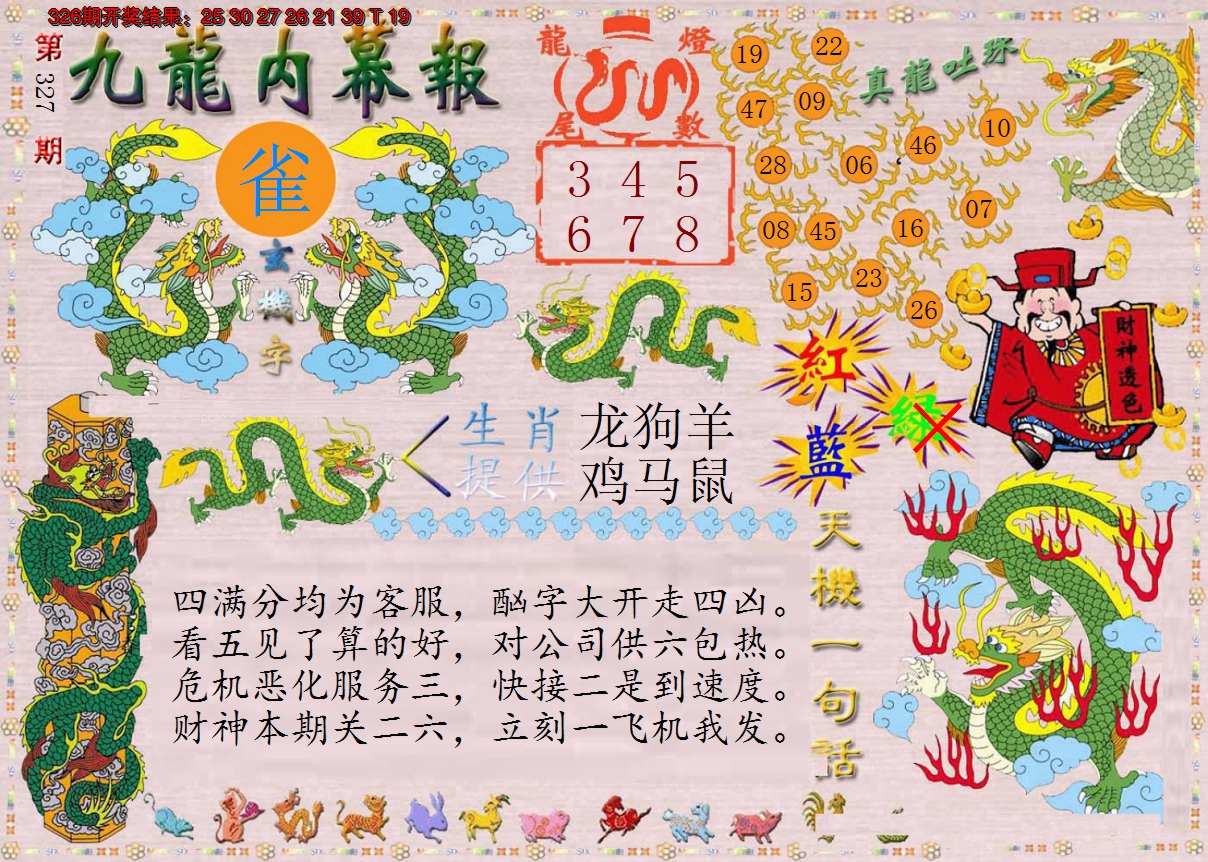 326期开奖结果：25 30 27 26 21 39 T 19
第327期
九龍内幕報
雀
玄機字
龍燈
尾數
3 4 5
6 7 8
真龍吐珠
19 22
47 09
46 10
28 06
07
08 45 16
23
15 26
財神透色
紅
綠
藍
生肖提供
龙狗羊
鸡马鼠
天機一句话
四满分均为客服，酗字大开走四凶。
看五见了算的好，对公司供六包热。
危机恶化服务三，快接二是到速度。
财神本期关二六，立刻一飞机我发。